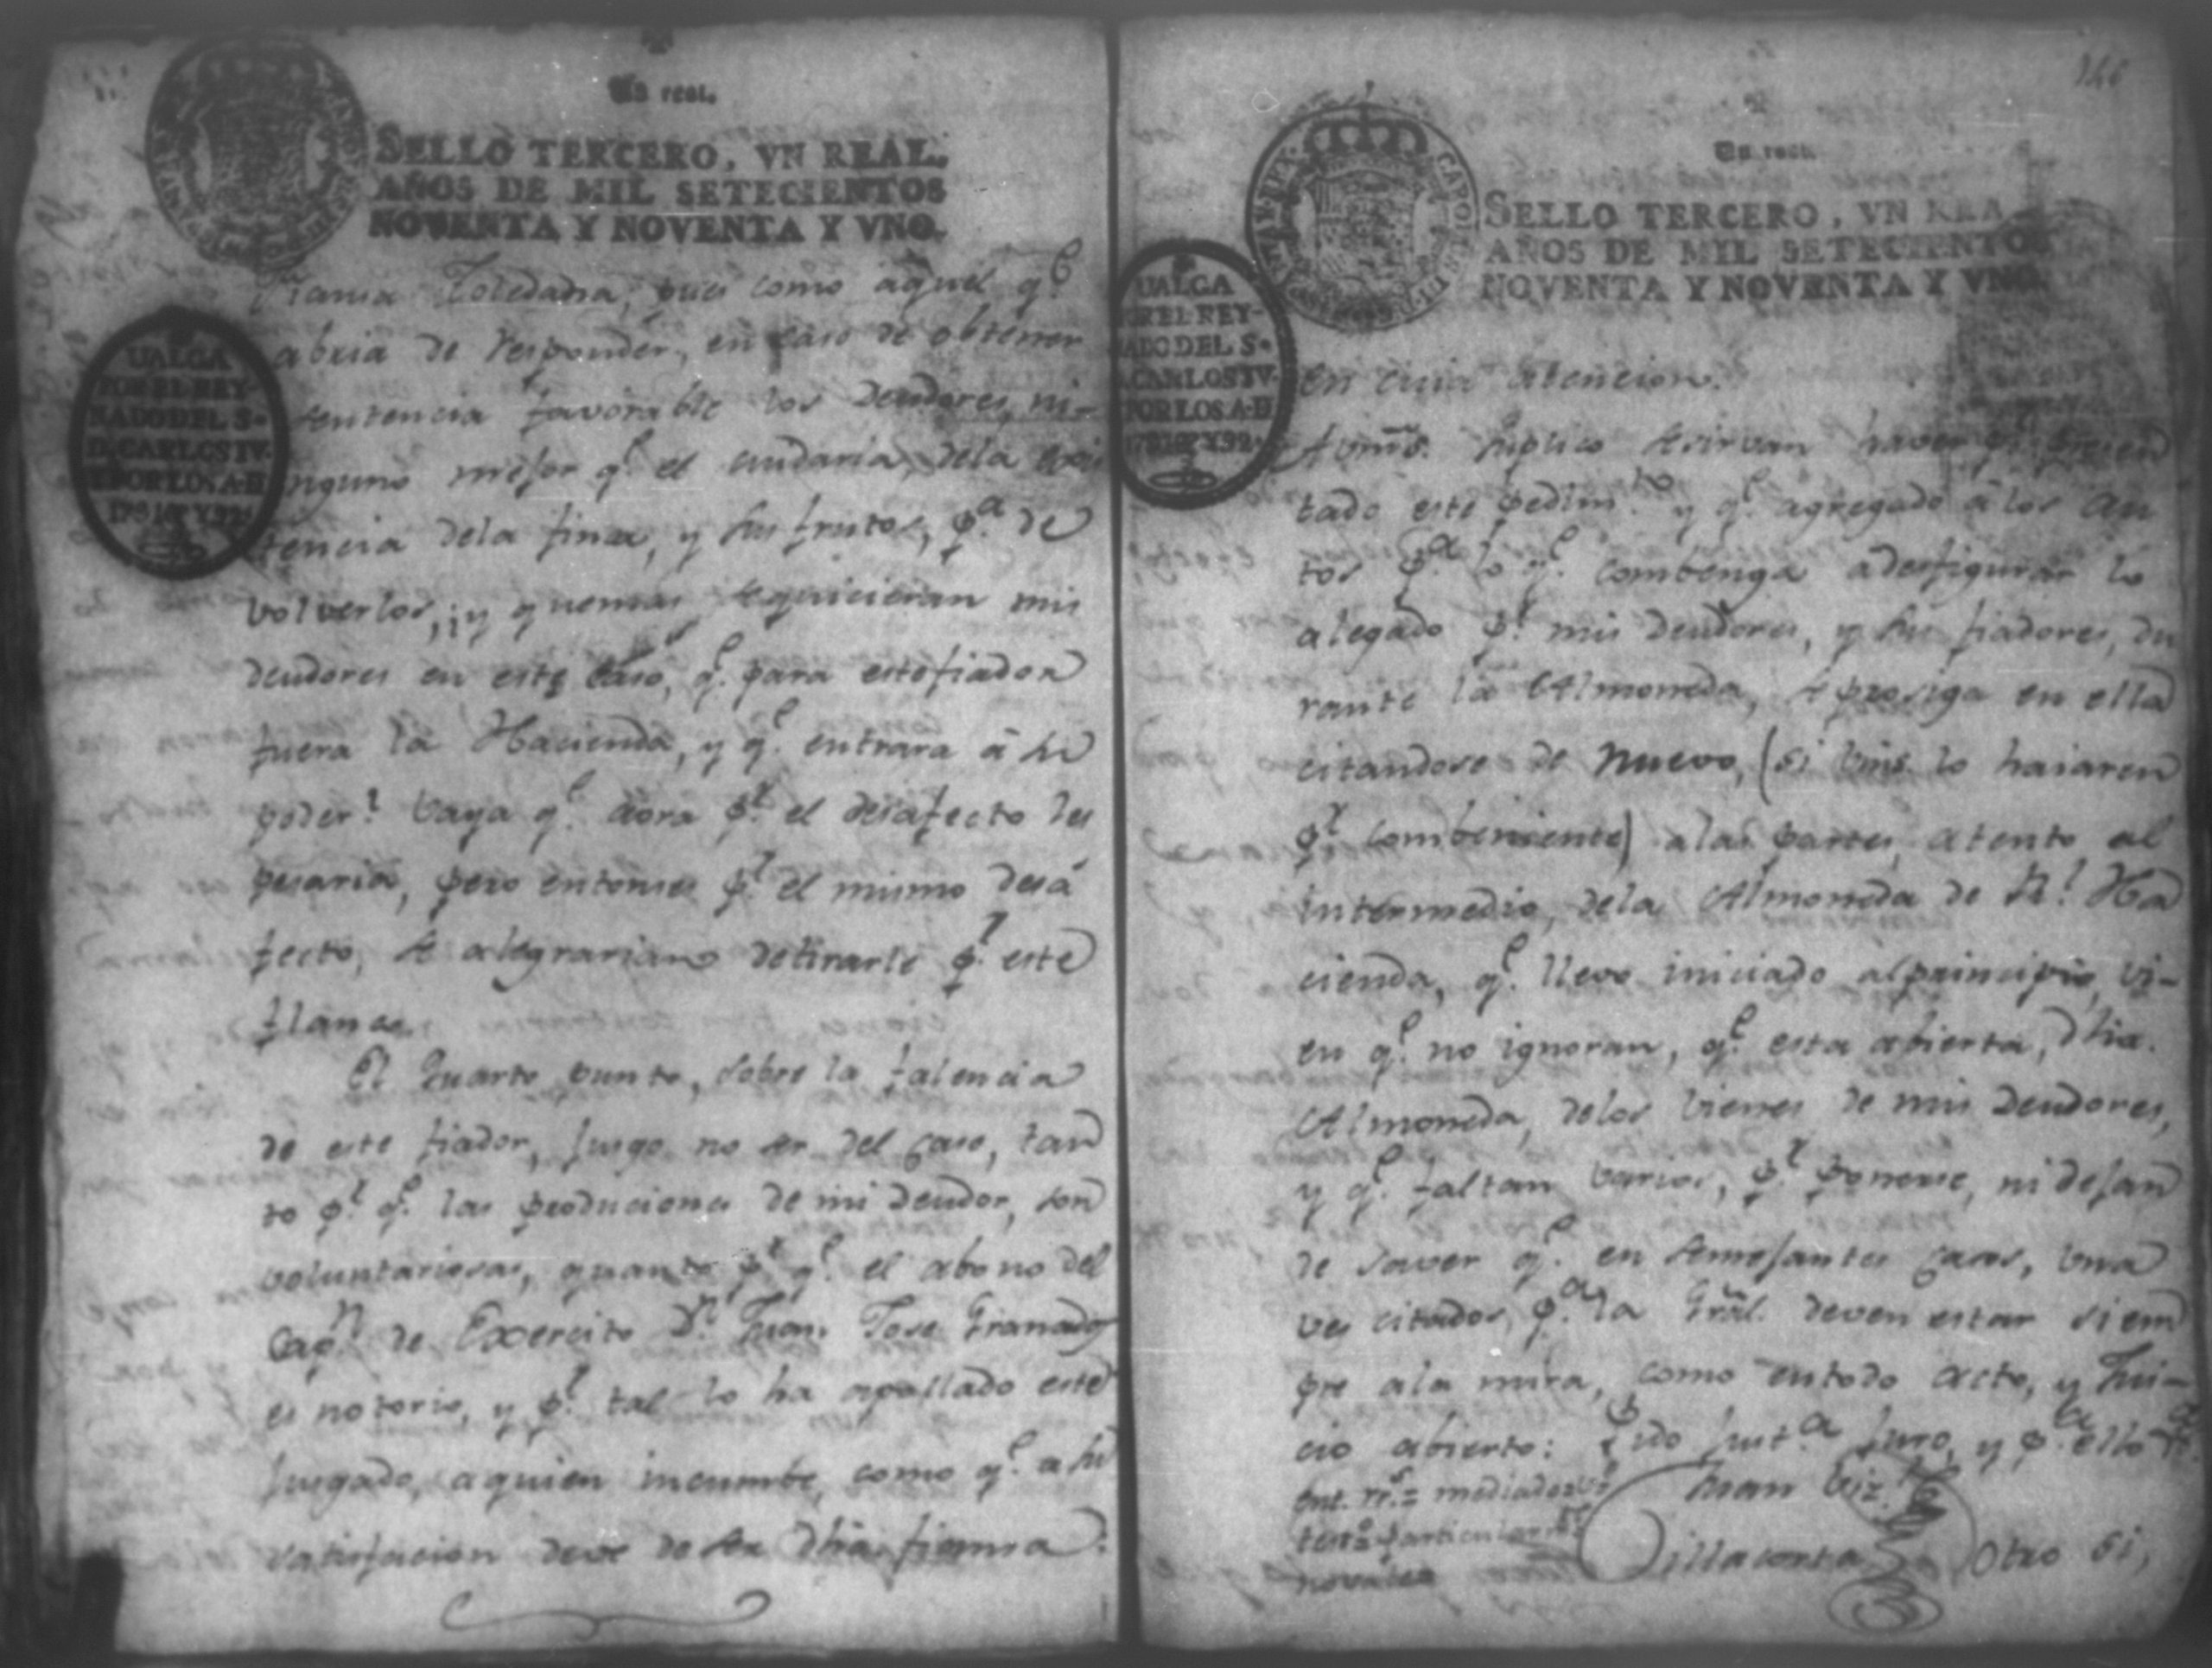 Un real.
SELLO TERCERO, VN REAL.
AÑOS DE MIL SETECIENTOS
NOVENTA Y NOVENTA Y VNO.
UALGA
POR EL REY-
NADO DEL S.
D. CARLOS IV.
POR LOS A. D
fiansa Toledana, pues como aquel q.e
abria de responder, en caso de obtener
sentencia favorable los Deudores, ni-
nguno mejor q.e el cuidaria, dela exis
tencia dela finca, y sus frutos, p.a de
volverlos, y quemas apetecieran mis
deudores en este caso, q.e para estefiador
fuera la Hacienda, y q.e entrara â su
poder? Vaya q.e aora p.r el desafecto les
pesaria, pero entonses p.r el mismo desa
fecto, se alegrarian detirarle p.r este
flanco.
El Quarto punto, sobre la falencia
de este fiador, jusgo no ser del caso, tan
to p.r q.e las produciones de mi deudor, son
voluntariosas, quanto p.r q.e el abono del
Cap.n de Exercito D.n Juan Jose Granado
es notorio, y p.r tal lo ha apallado este
Jusgado, aquien incumbe, como q.e a su
satisfacion deve de ser dha fianza:
146
Un real.
SELLO TERCERO, VN REA
AÑOS DE MIL SETECIENTOS
NOVENTA Y NOVENTA Y VNO.
UALGA
POR EL REY-
NADO DEL S.
D. CARLOS IV.
POR LOS A. D
en cuia atencion.
Avms. suplico se sirvan haver p.r presen
tado este pedim.to y q.e agregado â los au
tos p.a lo q.e combenga adesfigurar lo
alegado p.r mis deudores, y sus fiadores, du
rante la Almoneda, se prosiga en ella
citandose de nuevo, (si vms. lo haiaren
p.r combeniente) alas partes, atento al
intermedio, dela Almoneda de R.l Ha
cienda, q.e llevo iniciado alprincipio, vi-
en q.e no ignoran, q.e esta abierta, dha.
Almoneda, delos vienes de mis Deudores,
y q.e faltan varios, p.r ponerse, ni dejan
de saver q.e en semejantes casos, vna
ves citados p.a la Gral. deven estar siem
pre ala mira, como entodo acto, y Jui-
cio abierto: Pido just.a juro, y p.a ello
Ent. rr.s
Juan
Villacorta
Otro si,